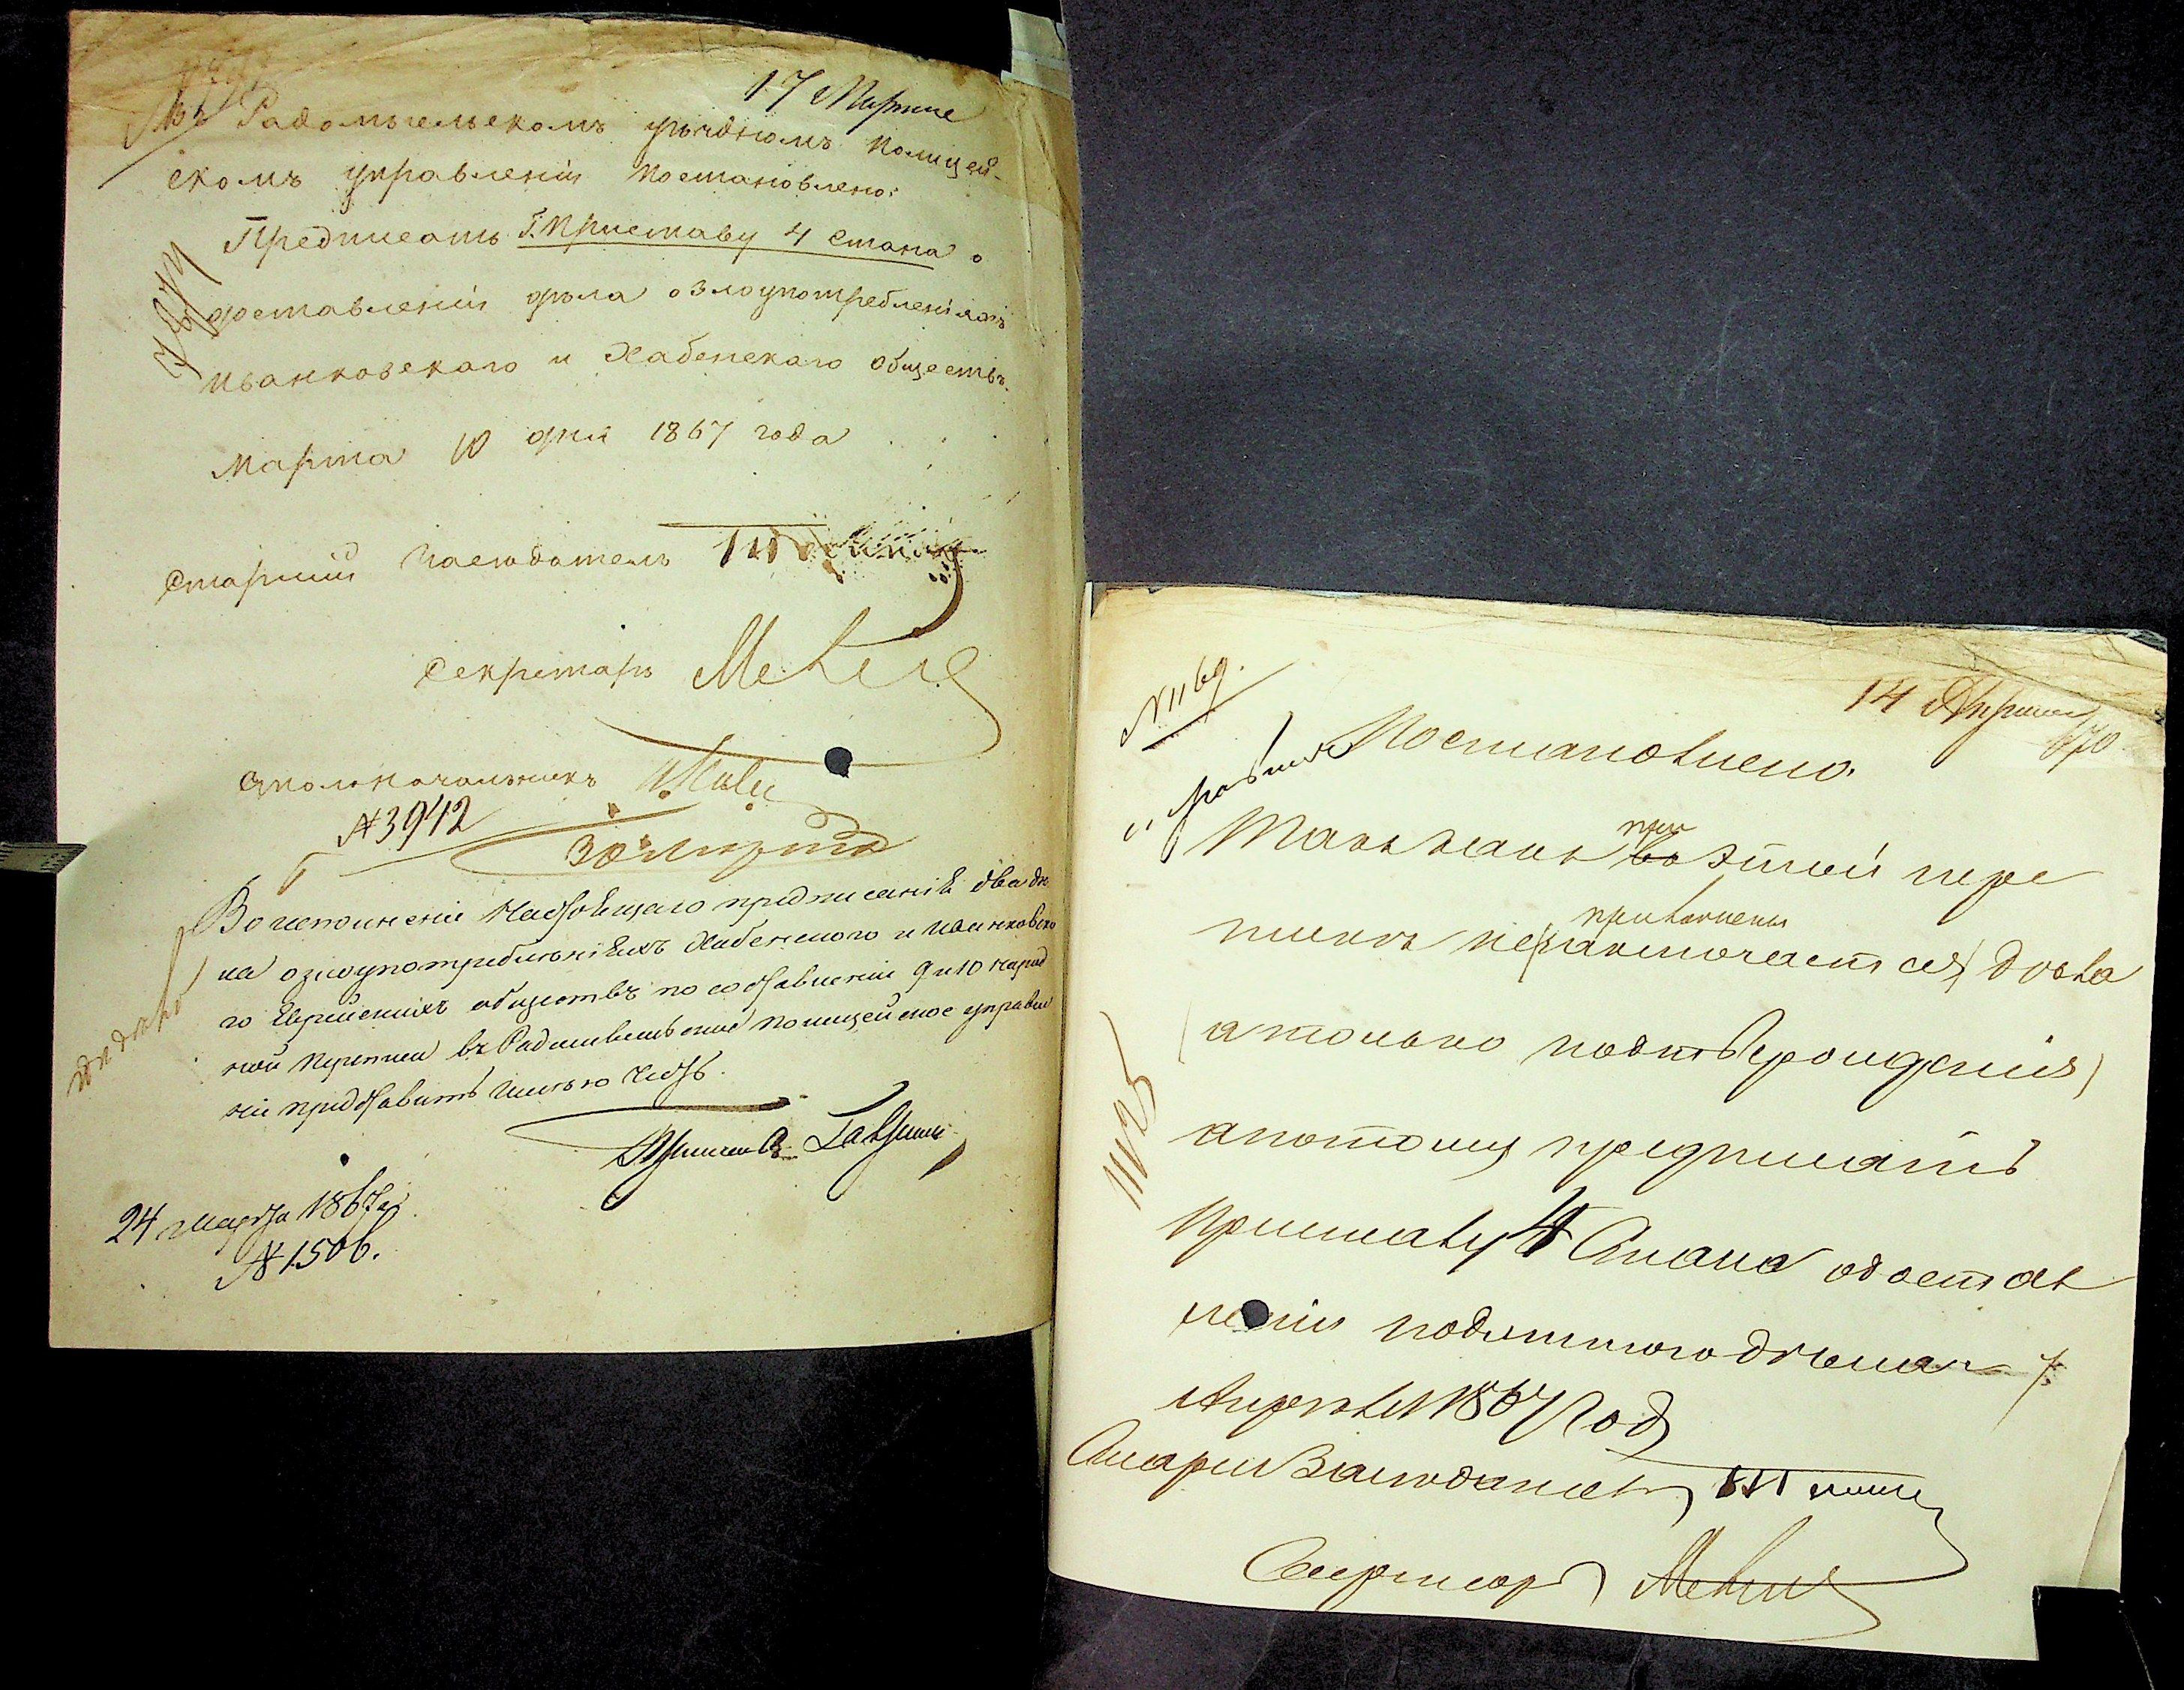 17 Марта
Въ Радомысльскомъ уѣздномъ полицей-
скомъ управленіи постановлено:
Предписать Г. Приставу 4 стана о
доставленіи дѣла о злоупотребленіяхъ
Иванковскаго и Хабенскаго обществъ.
Марта 10 дня 1867 года
Старшій Засѣдатель
Секретарь
Столоначальникъ
№ 3942
30 Марта
Во исполненіе настоящаго предписанія два дѣ
ла о злоупотребленіяхъ Хабенского и Иванковско
го Еврейскихъ обществъ по составленіи 9 и 10 народ
ной переписи въ Радомысльское полицейское управле
ніе представить имѣю честь.
24 марта 1867 г.
№ 1506.
№ 1169.
14 Апреля
170
Постановлено.
Такъ какъ во при этой пере
пискѣ не заключается приложены дѣла
а только подтвержденія
а потому предписать
Приставу 4 Стана о достав
леніи подлинного дѣла
Апрѣля 1867 год
Старш Засѣдатель
Секретарь